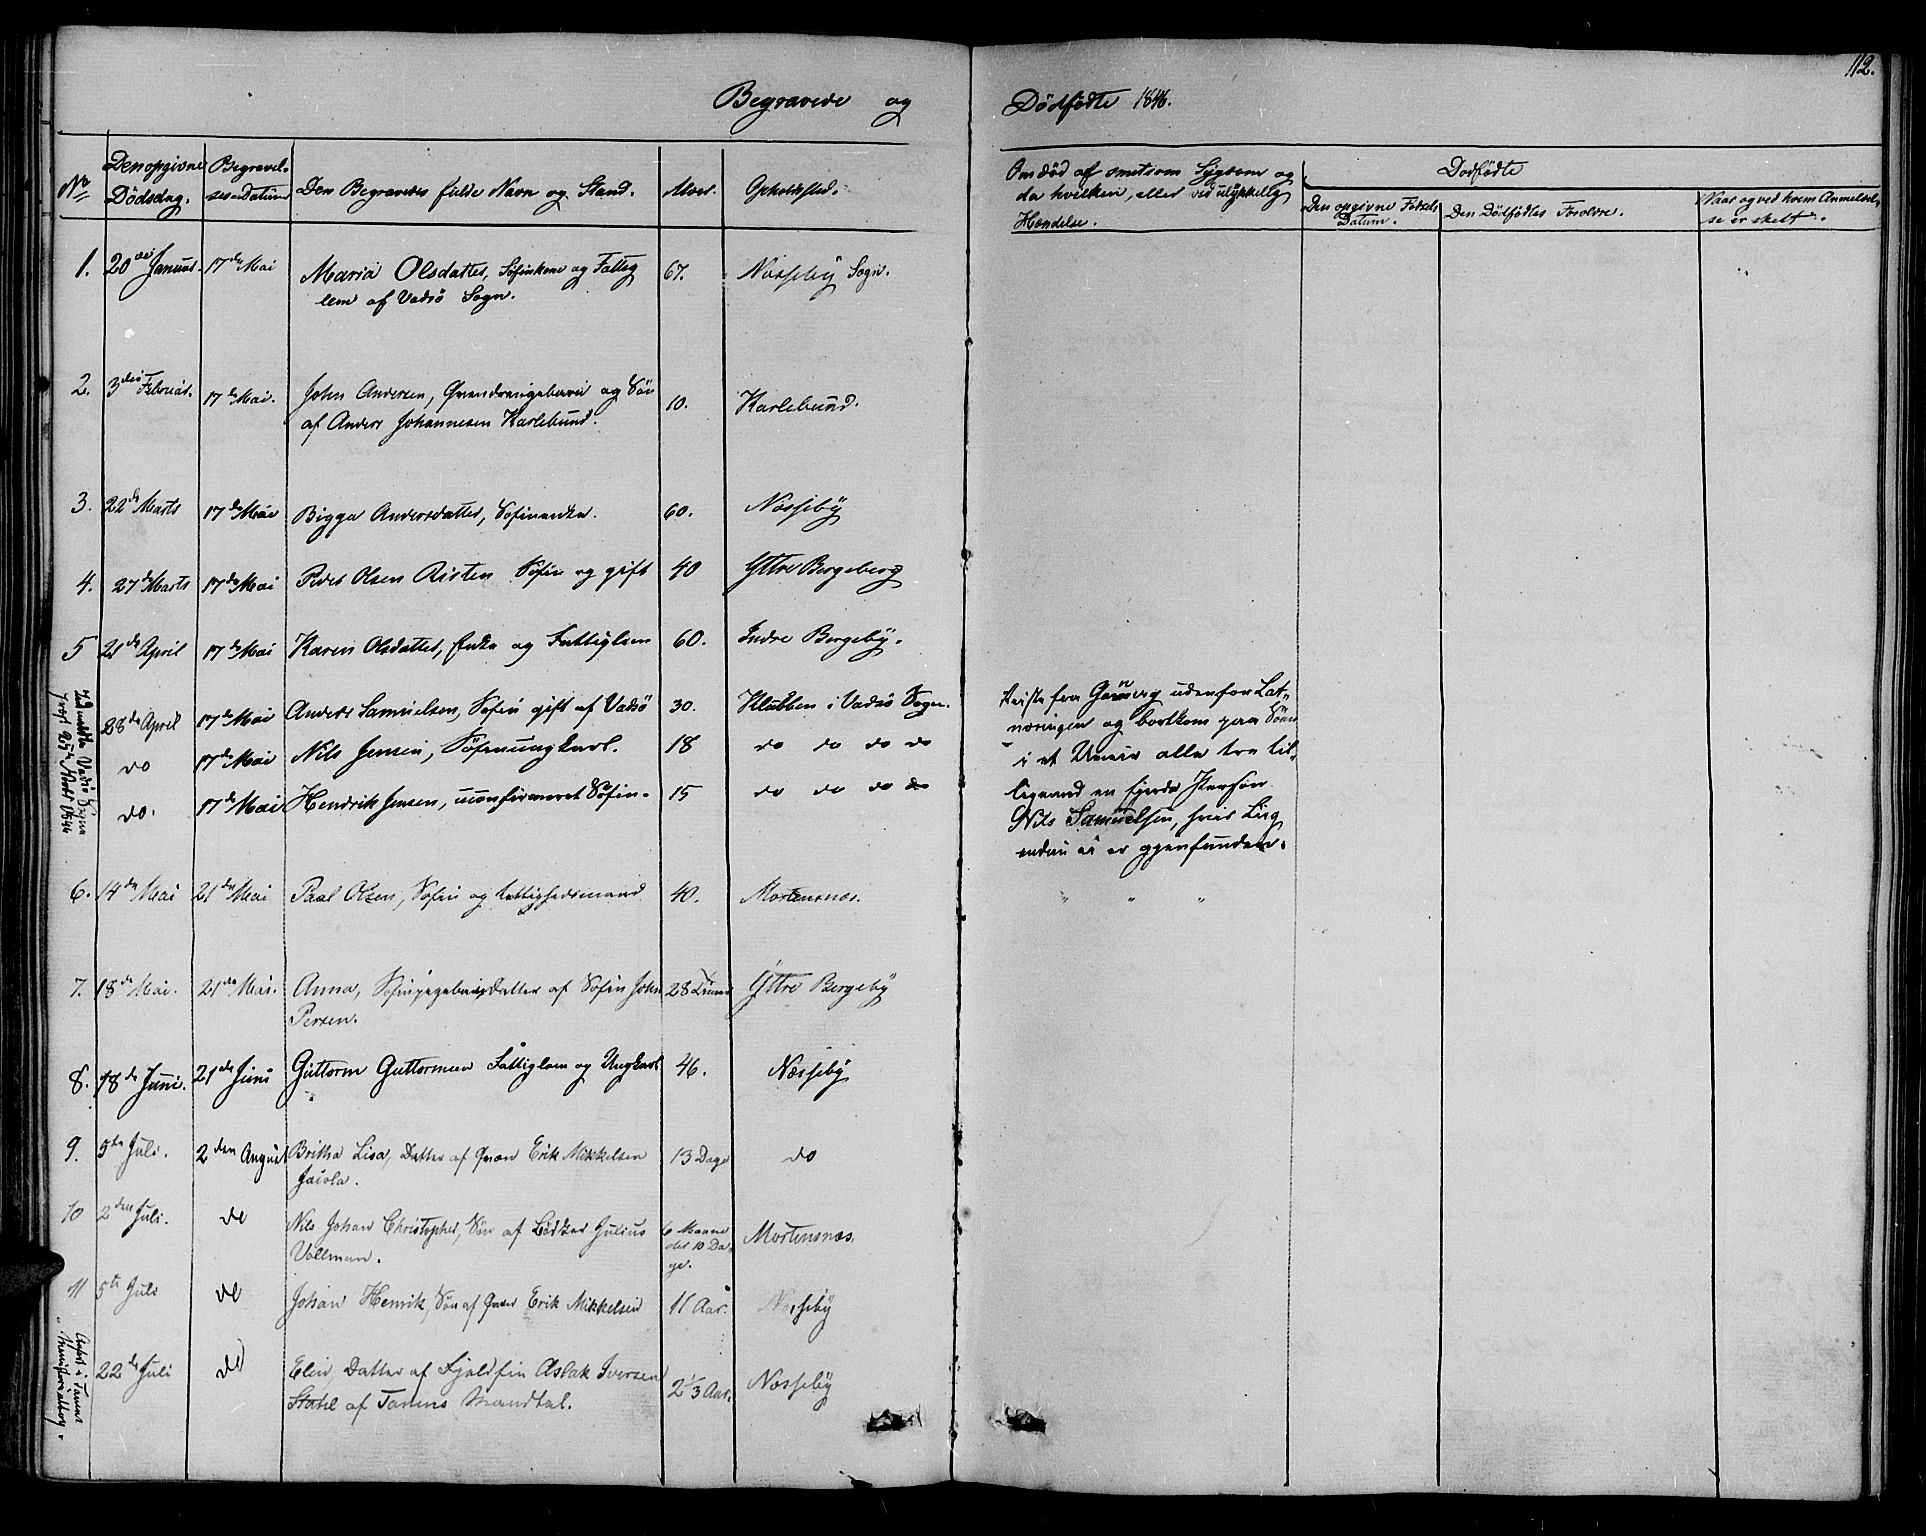 112.
Begravede og Dödfödte 1846.
No
Den opgivne Dödsdag.
Begravelsens Datum
Den Begravedes fulde Navn og Stand.
Alder.
Opholdsted.
Om död af smitsom Sygdom og
da hvilken, eller ved ulykkelig
Hændelse.
Dødfødte
Den opgivne Fødsels Datum.
Den Dödfödtes Forældre.
Naar og ved hvem Anmeldel-
se er skett.
1. 20de Januar. 17de Mai Maria Olsdatter, Söfinkone og Fattig 67. Næsseby Sogn.
lem af Vadsö Sogn.
2. 3die Februar. 17de Mai. John Andersen, Qvændrengebarn og Sön 10. Karlebund.
af Anders Johannesen Karlebund.
3. 22de Marts 17de Mai Bigga Andersdatter, Søfinenke. 60. Næsseby
4. 27de Marts 17de Mai Peder Olsen Risten Söfin og gift 40 Yttre Bergeberg
5 21de April 17de Mai Karen Olsdatter, Enke og Fattiglem 60. Indre Bergeby.
28de April 17de Mai Anders Samuelsen, Søfin gift af Vadsö 30. Klubben i Vadsö Sogn.
do 17de Mai Nils Jensen, Söfinungkarl. 18 do do do do
do. 17de Mai Hendrik Jensen, uconfirmeret Söfin. 15 do do do do
Reiste fra
udenfor
og bortkom paa Söen
i et Uveir alle tre til-
ligemed en fjerde Person
Nils Samuelsen, hvis Liig
endnu ei er gjenfunden.
6. 14de Mai 21de Mai Paul Olsen, Søfin og Rettighedsmand 40. Mortensnæs. " " "
7. 18de Mai. 21de Mai. Anna, Søfinpigebarn, Datter af Søfin John 28 Yttre Bergeby
Persen.
8. 18de Juni. 21de Juni Guttorm Guttormsen Fattiglem og Ungkarl 46. Næsseby
9. 5te Juli. 2den August Britha Lisa, Datter af Qvæn Erik Mikkelsen 13 Dage do
10 2den Juli. do Nils Johan Christopher, Sön af Bödker Julius 6 Maane Mortensnæs.
Vollman. der 10 Da-
ge.
11 5te Juli do Johan Henrik, Sön af Qvæn Erik Mikkelsen 11 Aar. Næsseby
22de Juli do Elen, Datter af Fjeldfin Aslak Iversen 2 1/3 Aar. Næsseby
af Tanens Mandtal.
Anført i Tanens
Ministerialbog.